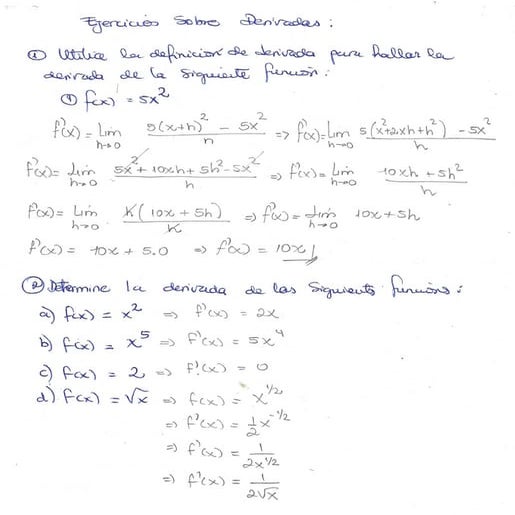 Ejercicios sobre Derivadas:
① Utilice la definición de derivada para hallar la
derivada de la siguiente función:
① f(x) = 5x²
f'(x) = Lim h→0 5(x+h)² - 5x² / h => f'(x) = Lim h→0 5(x²+2xh+h²) - 5x² / h
f'(x) = Lim h→0 5x² + 10xh + 5h² - 5x² / h => f'(x) = Lim h→0 10xh + 5h² / h
f'(x) = Lim h→0 h(10x + 5h) / h => f'(x) = Lim h→0 10x + 5h
f'(x) = 10x + 5.0 => f'(x) = 10x
② Determine la derivada de las siguients funcions:
a) f(x) = x² => f'(x) = 2x
b) f(x) = x⁵ => f'(x) = 5x⁴
c) f(x) = 2 => f'(x) = 0
d) f(x) = √x => f(x) = x^1/2
=> f'(x) = 1/2 x^-1/2
=> f'(x) = 1 / 2x^1/2
=> f'(x) = 1 / 2√x